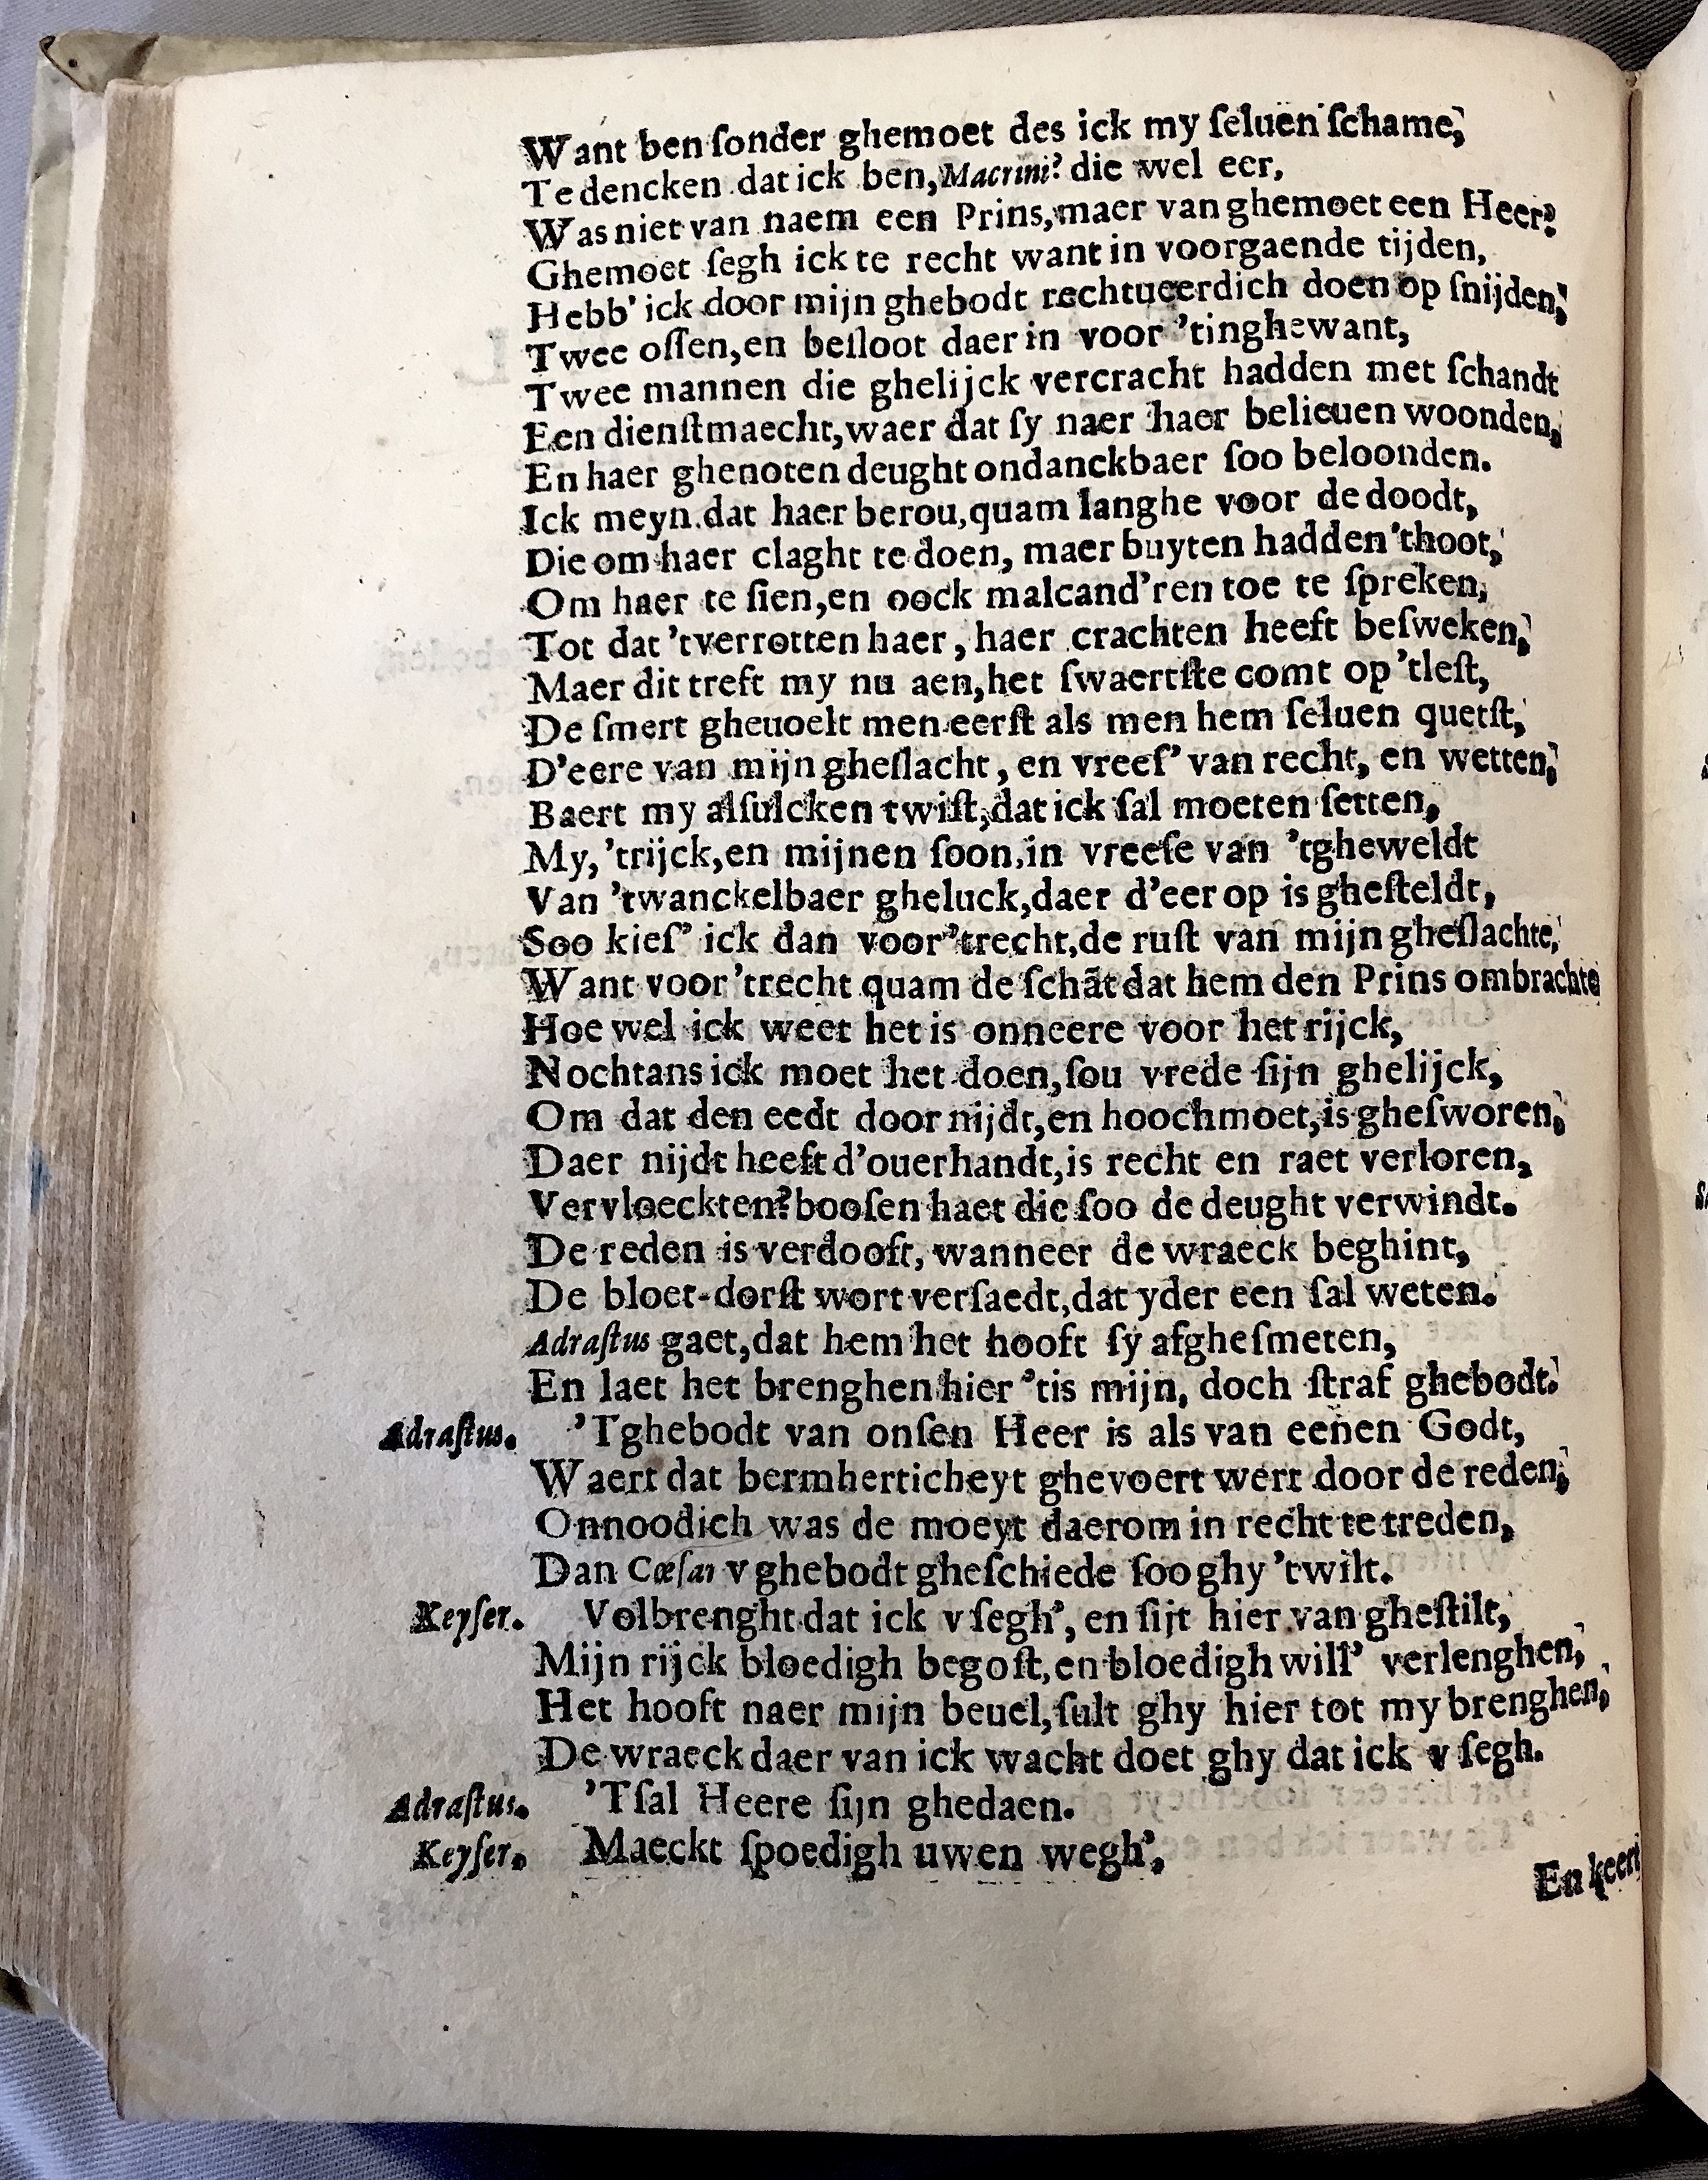 Want ben ſonder ghemoet des ick my ſeluen ſchame,
Te dencken dat ick ben, Macrini? die wel eer,
Was niet van naem een Prins, maer van ghemoet een Heer?
Ghemoet ſegh ick te recht want in voorgaende tijden,
Hebb' ick door mijn ghebodt rechtueerdich doen op ſnijden,
Twee oſſen, en beſloot daer in voor 'tinghewant,
Twee mannen die ghelijck vercracht hadden met ſchandt
Een dienſtmaecht, waer dat ſy naer haer belieuen woonden,
En haer ghenoten deught ondanckbaer ſoo beloonden.
Ick meyn dat haer berou, quam langhe voor de doodt,
Die om haer claght te doen, maer buyten hadden 'thoot,
Om haer te ſien, en oock malcand'ren toe te ſpreken,
Tot dat 'tverrotten haer, haer crachten heeft beſweken,
Maer dit treft my nu aen, het ſwaertſte comt op 'tleſt,
De ſmert gheuoelt men eerſt als men hem ſeluen quetſt,
D'eere van mijn gheſlacht, en vreeſ' van recht, en wetten,
Baert my alſulcken twiſt, dat ick ſal moeten ſetten,
My, 'trijck, en mijnen ſoon, in vreeſe van 'tgheweldt
Van 'twanckelbaer gheluck, daer d'eer op is gheſteldt,
Soo kieſ' ick dan voor 'trecht, de ruſt van mijn gheſlachte,
Want voor 'trecht quam de ſchãt dat hem den Prins ombrachte
Hoe wel ick weet het is onneere voor het rijck,
Nochtans ick moet het doen, ſou vrede ſijn ghelijck,
Om dat den eedt door nijdt, en hoochmoet, is gheſworen,
Daer nijdt heeft d'ouerhandt, is recht en raet verloren,
Vervloeckten? booſen haet die ſoo de deught verwindt.
De reden is verdooft, wanneer de wraeck beghint,
De bloet-dorſt wort verſaedt, dat yder een ſal weten.
Adraſtus gaet, dat hem het hooft ſy afgheſmeten,
En laet het brenghen hier 'tis mijn, doch ſtraf ghebodt.
Adraſtus. 'Tghebodt van onſen Heer is als van eenen Godt,
Waert dat bermherticheyt ghevoert wert door de reden,
Onnoodich was de moeyt daerom in recht te treden,
Dan Cæſar v ghebodt gheſchiede ſoo ghy 'twilt.
Keyſer. Volbrenght dat ick v ſegh', en ſijt hier van gheſtilt,
Mijn rijck bloedigh begoſt, en bloedigh will' verlenghen,
Het hooft naer mijn beuel, ſult ghy hier tot my brenghen,
De wraeck daer van ick wacht doet ghy dat ick v ſegh.
Adraſtus. 'Tſal Heere ſijn ghedaen.
Keyſer. Maeckt ſpoedigh uwen wegh',
En keert